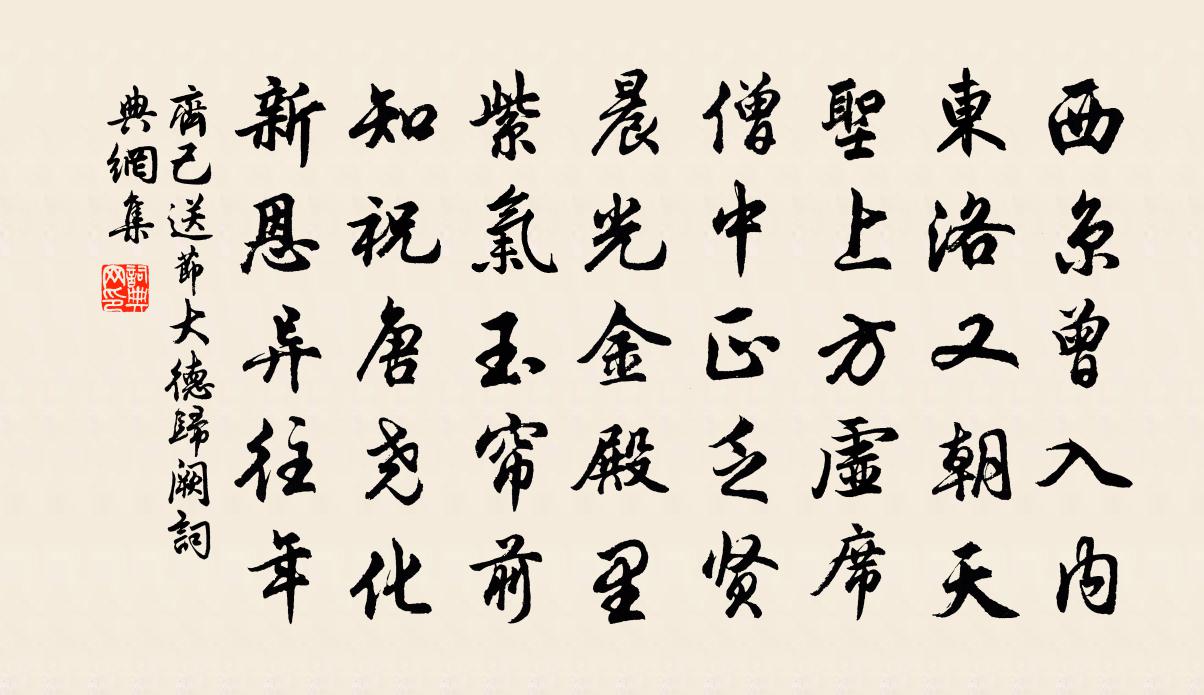 西京曾入内
東洛又朝天
聖上方虛席
僧中正乏贤
晨光金殿里
紫氣玉帘前
知祝唐尧化
新恩异往年
齊己送節大德歸闕詞
典網集
詞典
网印